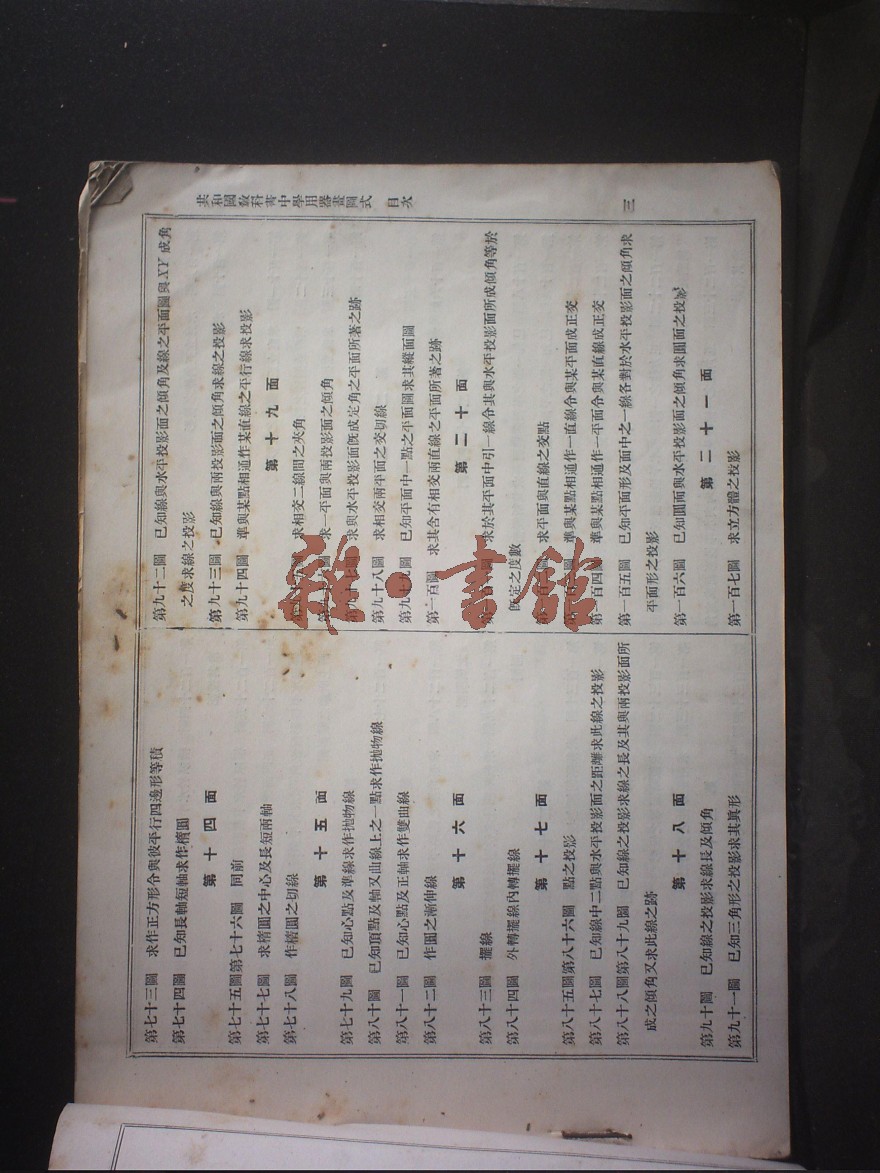 共和國教科書中學用器畫圖式 目次
三
第七十三圖 求作正方形令與彼平行四邊形等積
第七十四圖 已知長軸短軸求作橢圓
第十四面
第七十五圖第七十六圖 同前
第七十七圖 求橢圓之中心及長短兩軸
第七十八圖 作橢圓之切線
第十五面
第七十九圖 已知心點及準線求作拋物線
第八十圖 已知頂點及軸又曲線上之一點求作拋物線
第八十一圖 已知心點及正軸求作雙曲線
第八十二圖 作圓之漸伸線
第十六面
第八十三圖 擺線
第八十四圖 外轉擺線內轉擺線
第十七面
第八十五圖第八十六圖 點之投影
第八十七圖 已知線中二點與水平投影面之距離求此線之投影
第八十八圖第八十九圖 已知線之投影求線之長及其與兩投影面所
成之傾角又求此線之跡
第十八面
第九十圖 已知線之投影求線長及傾角
第九十一圖 已知三角形之投影求其眞形
第九十二圖 已知線與水平投影面之傾角及線之平面圖與XY成角
之度求線之投影
第九十三圖 已知線與兩投影面之傾角求線之投影
第九十四圖 準與某點相通作某直線之平行線求投影
第十九面
求相交二線間之夾角
求一平面與兩投影面之傾角
求與水平投影面旣成定角之平面所著之跡
第九十八圖 求相交兩平面之交切線
第九十九圖 已知平面中一點之平面圖求其縱面圖
第一百圖 求其含有相交兩直線之平面所著之跡
第二十面
求於其平面中引一線令其與水平投影面所成傾角等於
旣定之度數
求平面與直線之交點
準與某點相通作一直線令與某平面成正交
第一百四圖 準與某點相通作一平面令與某直線成正交
第一百五圖 已知平面形及面中之一線各對於水平投影面之傾角求
平面形之投影
第一百六圖 已知圓面與水平投影面之傾角求圓面之投影
第二十一面
第一百七圖 求立方體之投影